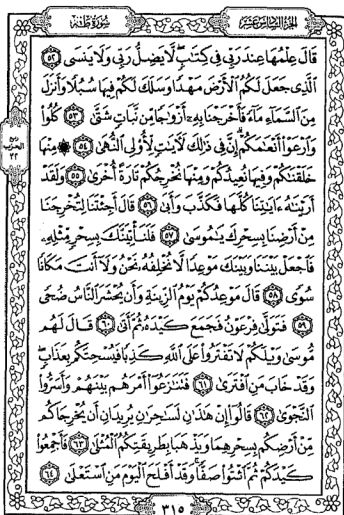 الجزء السادس عشر
سورة طه
قَالَ عِلْمُهَا عِندَ رَبِّي فِي كِتَٰبٍ لَّا يَضِلُّ رَبِّي وَلَا يَنسَى ٥٢
ٱلَّذِي جَعَلَ لَكُمُ ٱلْأَرْضَ مَهْدًا وَسَلَكَ لَكُمْ فِيهَا سُبُلًا وَأَنزَلَ
مِنَ ٱلسَّمَآءِ مَآءً فَأَخْرَجْنَا بِهِۦٓ أَزْوَٰجًا مِّن نَّبَاتٍ شَتَّىٰ ٥٣ كُلُوا۟
وَٱرْعَوْا۟ أَنْعَٰمَكُمْ إِنَّ فِي ذَٰلِكَ لَءَايَٰتٍ لِّأُو۟لِي ٱلنُّهَىٰ ٥٤ ۞ مِنْهَا
خَلَقْنَٰكُمْ وَفِيهَا نُعِيدُكُمْ وَمِنْهَا نُخْرِجُكُمْ تَارَةً أُخْرَىٰ ٥٥ وَلَقَدْ
أَرَيْنَٰهُ ءَايَٰتِنَا كُلَّهَا فَكَذَّبَ وَأَبَىٰ ٥٦ قَالَ أَجِئْتَنَا لِتُخْرِجَنَا
مِنْ أَرْضِنَا بِسِحْرِكَ يَٰمُوسَىٰ ٥٧ فَلَنَأْتِيَنَّكَ بِسِحْرٍ مِّثْلِهِۦ
فَٱجْعَلْ بَيْنَنَا وَبَيْنَكَ مَوْعِدًا لَّا نُخْلِفُهُۥ نَحْنُ وَلَآ أَنتَ مَكَانًا
سُوًى ٥٨ قَالَ مَوْعِدُكُمْ يَوْمُ ٱلزِّينَةِ وَأَن يُحْشَرَ ٱلنَّاسُ ضُحًى
٥٩ فَتَوَلَّىٰ فِرْعَوْنُ فَجَمَعَ كَيْدَهُۥ ثُمَّ أَتَىٰ ٦٠ قَالَ لَهُم
مُّوسَىٰ وَيْلَكُمْ لَا تَفْتَرُوا۟ عَلَى ٱللَّهِ كَذِبًا فَيُسْحِتَكُم بِعَذَابٍ
وَقَدْ خَابَ مَنِ ٱفْتَرَىٰ ٦١ فَتَنَٰزَعُوٓا۟ أَمْرَهُم بَيْنَهُمْ وَأَسَرُّوا۟
ٱلنَّجْوَىٰ ٦٢ قَالُوٓا۟ إِنْ هَٰذَٰنِ لَسَٰحِرَٰنِ يُرِيدَانِ أَن يُخْرِجَاكُم
مِّنْ أَرْضِكُم بِسِحْرِهِمَا وَيَذْهَبَا بِطَرِيقَتِكُمُ ٱلْمُثْلَىٰ ٦٣ فَأَجْمِعُوا۟
كَيْدَكُمْ ثُمَّ ٱئْتُوا۟ صَفًّا وَقَدْ أَفْلَحَ ٱلْيَوْمَ مَنِ ٱسْتَعْلَىٰ ٦٤
ربع
الحزب
٣٢
٣١٥